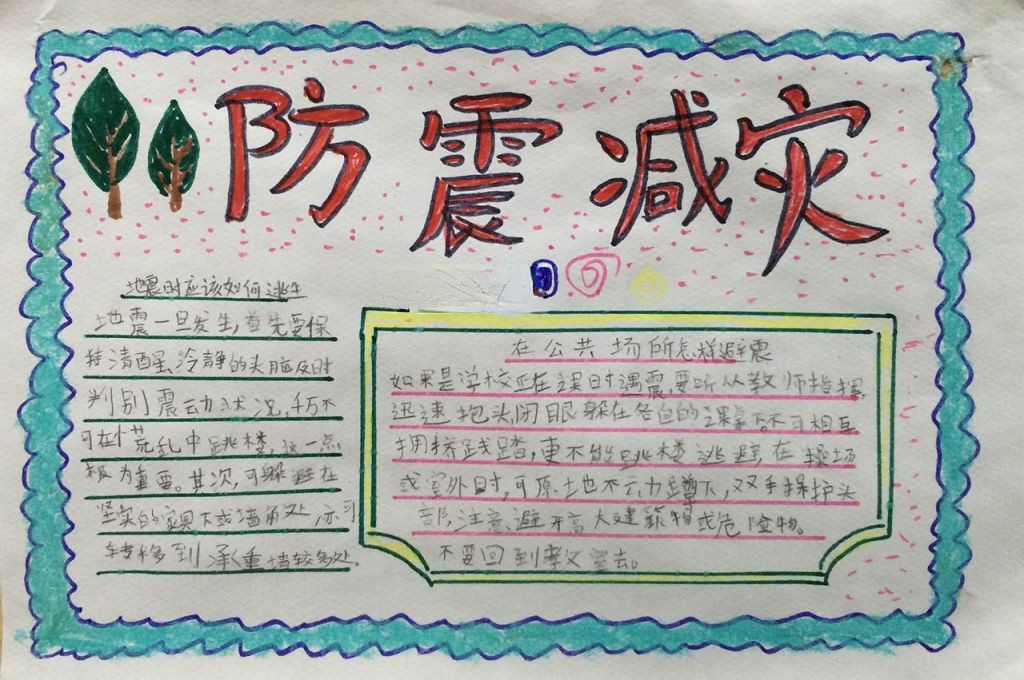 防震减灾
地震时应该如何逃生
地震一旦发生,首先要保
持清醒、冷静的头脑及时
判别震动状况,千万不
可在慌乱中跳楼,这一点
极为重要。其次,可躲避在
坚实的家具下或墙角处,亦可
转移到承重墙较多处.
在公共场所怎样避震
如果是学校正在上课时遇震,要听从教师指挥,
迅速抱头,闭眼躲在各自的课桌下不可相互
拥挤践踏,更不能跳楼逃避,在操场
或室外时,可原地不动蹲下,双手保护头
部,注意避开高大建筑物或危险物。
不要回到教室去。